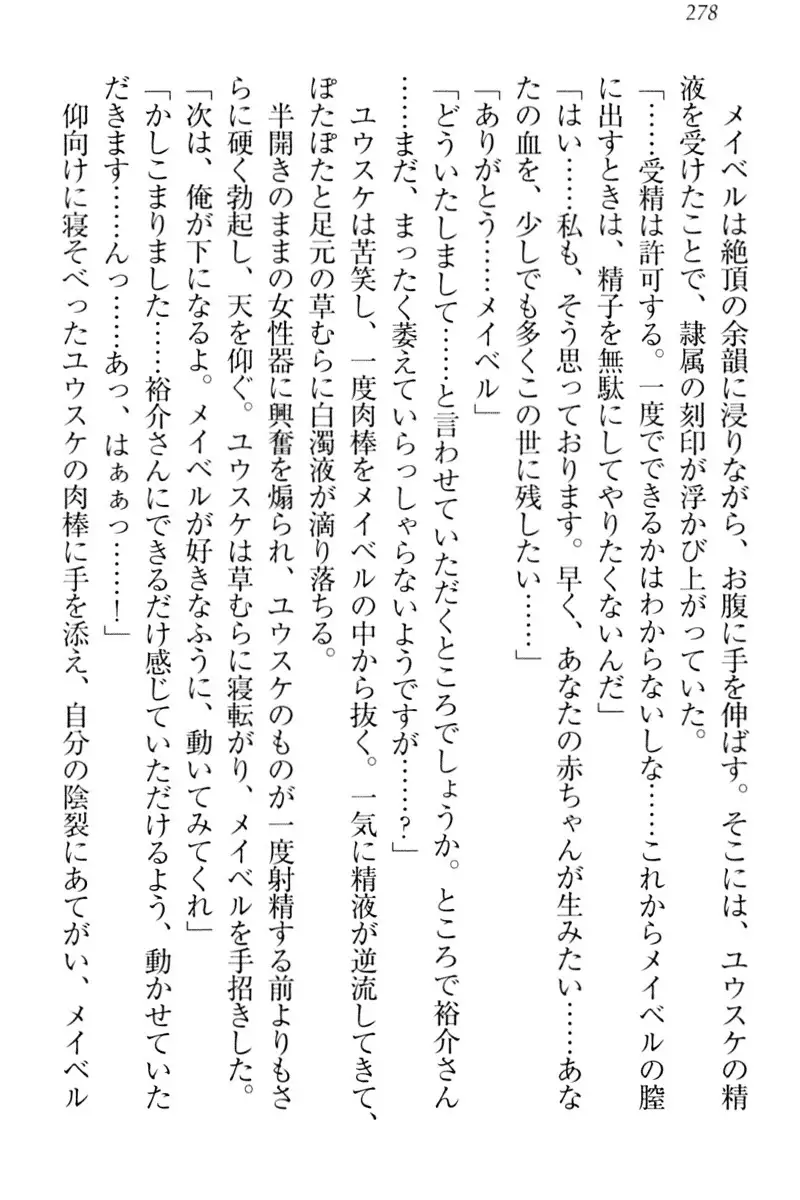 278
メイベルは絶頂の余韻に浸りながら、お腹に手を伸ばす。そこには、ユウスケの精
液を受けたことで、隷属の刻印が浮かび上がっていた。
「……受精は許可する。一度でできるかはわからないしな……これからメイベルの膣
に出すときは、精子を無駄にしてやりたくないんだ」
「はい……私も、そう思っております。早く、あなたの赤ちゃんが生みたい……あな
たの血を、少しでも多くこの世に残したい……」
「ありがとう……メイベル」
「どういたしまして……と言わせていただくところでしょうか。ところで裕介さん
……まだ、まったく萎えていらっしゃらないようですが……？」
ユウスケは苦笑し、一度肉棒をメイベルの中から抜く。一気に精液が逆流してきて、
ぽたぽたと足元の草むらに白濁液が滴り落ちる。
半開きのままの女性器に興奮を煽られ、ユウスケのものが一度射精する前よりもさ
らに硬く勃起し、天を仰ぐ。ユウスケは草むらに寝転がり、メイベルを手招きした。
「次は、俺が下になるよ。メイベルが好きなふうに、動いてみてくれ」
「かしこまりました……裕介さんにできるだけ感じていただけるよう、動かせていた
だきます……んっ……あっ、はぁぁっ……！」
仰向けに寝そべったユウスケの肉棒に手を添え、自分の陰裂にあてがい、メイベル